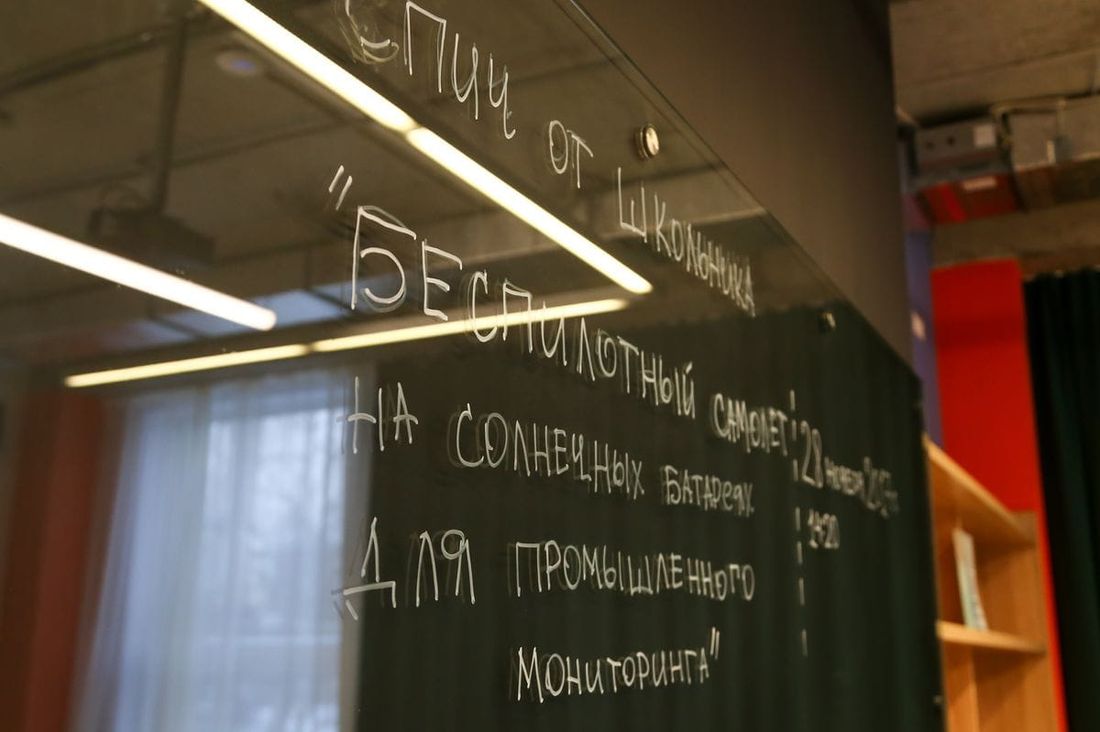 Спич от школьника
"Беспилотный самолет
на солнечных батареях
для промышленного
мониторинга"
28 ноября 2017г.
14:20